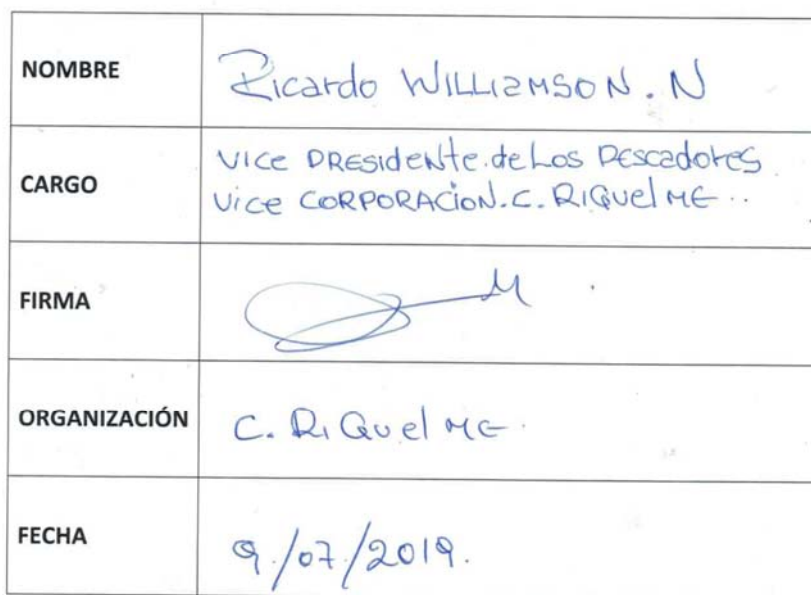 NOMBRE
Ricardo WILLIAMSON. N
CARGO
VICE PRESIDENTE.de Los PEScadores
Vice CORPORACION.C. RIQUELME..
FIRMA
ORGANIZACIÓN
C. RiQuelME.
FECHA
9./07/2019.